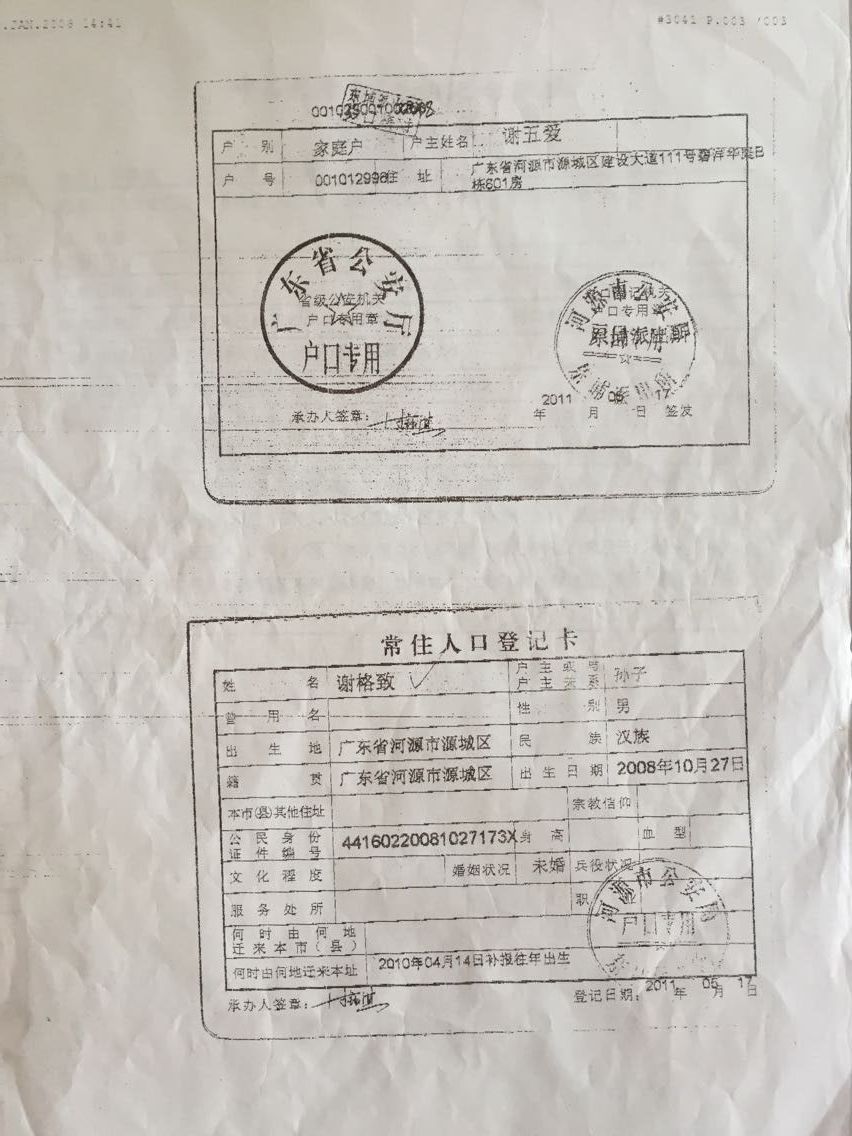 .JAN.2009 14:41
#3041 P.003 /003
户 别 家庭户 户主姓名 谢五爱
户 号 001012998 住 址 广东省河源市源城区建设大道111号碧洋华庭B
栋601房
广东省公安厅
省级公安机关
户口专用章
户口专用
河源市公安局
承办人签章:
2011年05月17日 签发
常住人口登记卡
姓 名 谢格致 户主或与户主关系 孙子
曾用名 性 别 男
出生地 广东省河源市源城区 民 族 汉族
籍 贯 广东省河源市源城区 出生日期 2008年10月27日
本市(县)其他住址 宗教信仰
公民身份证件编号 44160220081027173X 身 高 血 型
文化程度 婚姻状况 未婚 兵役状况
服务处所 职
何时由何地迁来本市(县)
何时由何地迁来本址 2010年04月14日补报往年出生
河源市公安局
户口专用
承办人签章:
登记日期: 2011年05月17日